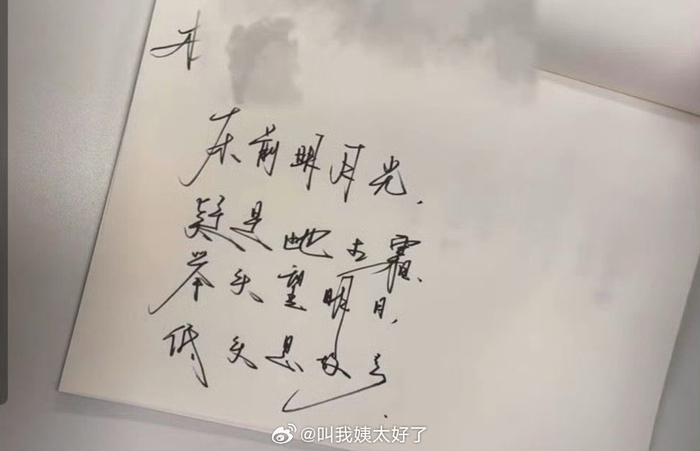 床前明月光，
疑是地上霜。
举头望明月，
低头思故乡。
@叫我姨太好了